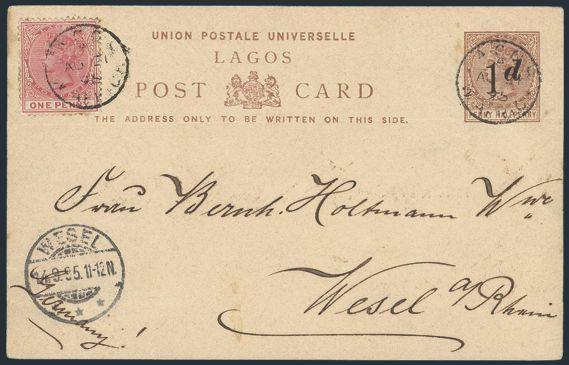 UNION POSTALE UNIVERSELLE
LAGOS
POST CARD
THE ADDRESS ONLY TO BE WRITTEN ON THIS SIDE.
ONE PENNY
1d
PENNY HALFPENNY
Frau Bernh. Holtmann Wwe
Wesel a/Rhein
WESEL
9.95.11-12N.
Germany!